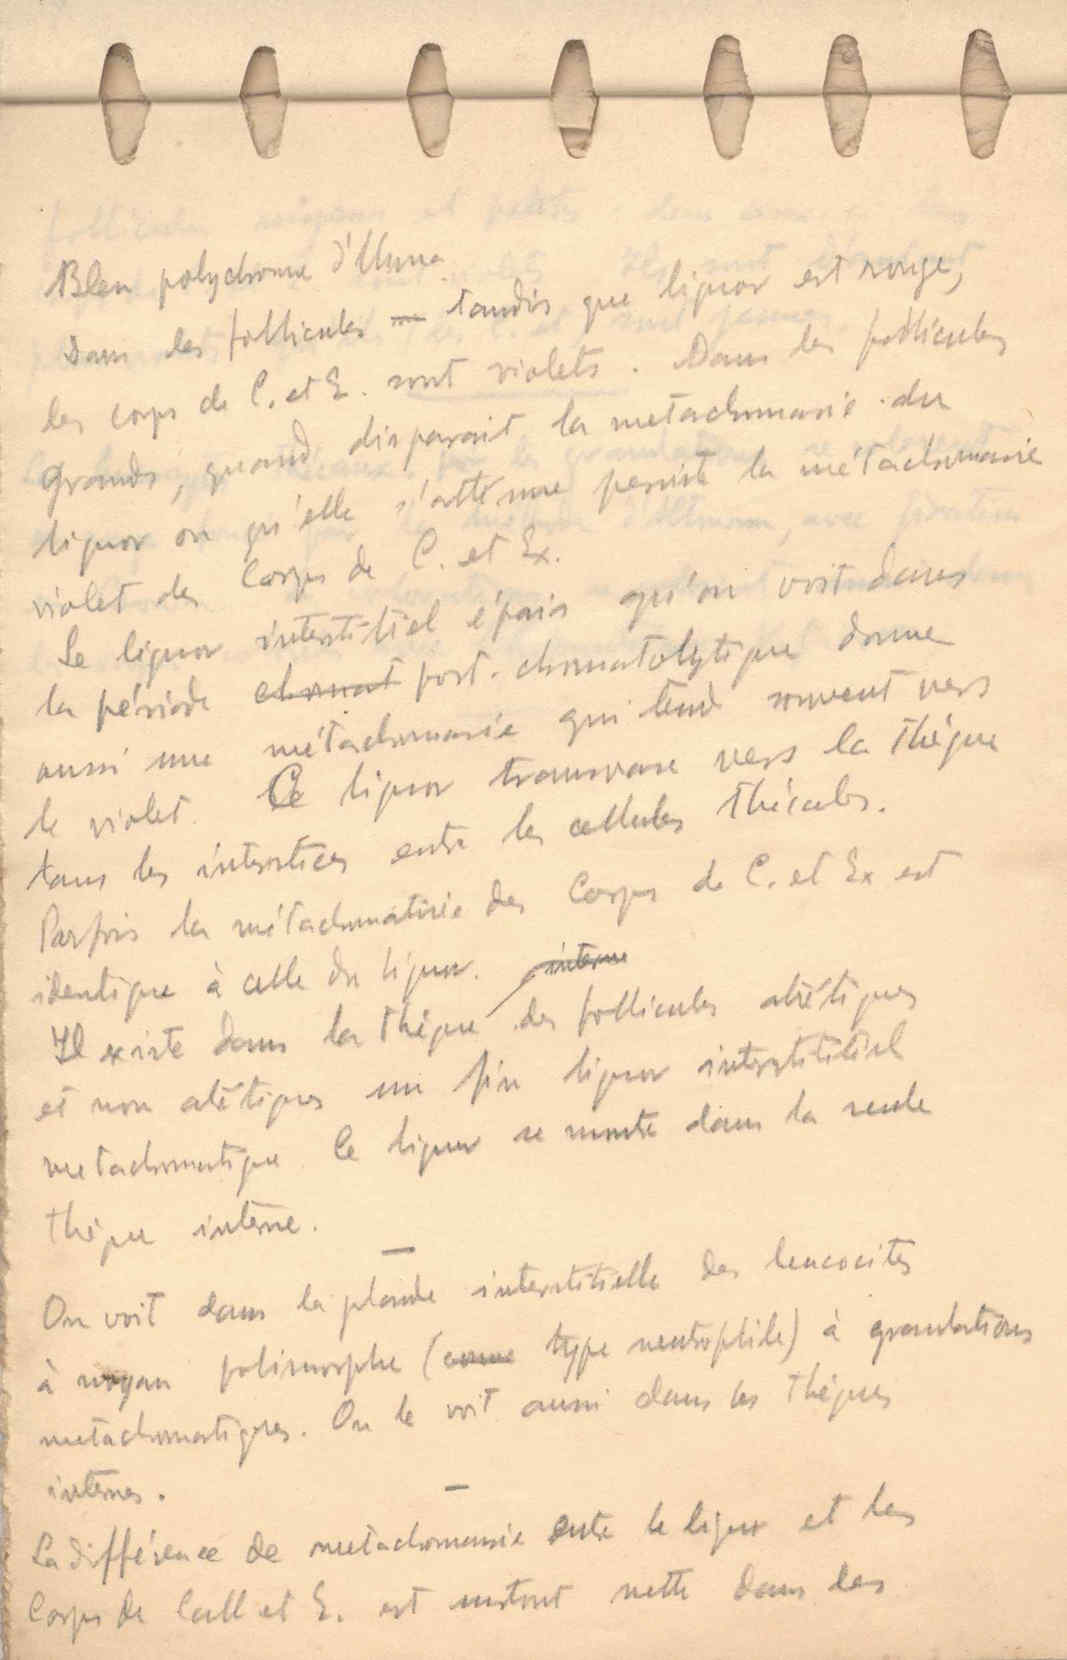 Bleu polychrome d'Unna
Dans les follicules tandis que liquor est rouge,
les corps de C. et E. sont violets. Dans les follicules
grands, quand disparait la metachromasie du
liquor ou qu'elle s'attenue persiste la métachromasie
violet des Corps de C. et Ex.
Le liquor interstitiel épais qu'on voit dans
la période chromat post-chromatolytique donne
aussi une métachromasie qui tend souvent vers
le violet. Ce liquor transvase vers la thèque
dans les interstices entre les cellules thécales.
Parfois la métachromasie des Corps de C. et Ex est
identique à celle du liquor.
interne
Il existe dans la thèque des follicules atrétiques
et non atrétiques un fin liquor interstitiel
metachromatique. Ce liquor se montre dans la seule
thèque interne.
On voit dans la glande interstitielle des leucocites
à noyau polimorphe (comme type neutrophile) à granulations
metachromatiques. On le voit aussi dans les thèques
internes.
La différence de metachromasie entre le liquor et les
Corps de Call et E. est surtout nette dans les